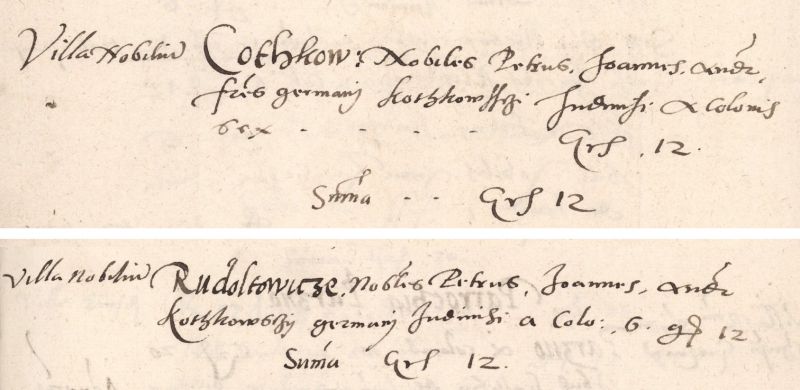 Villa Nobiliū Cothkow: Nobiles Petrus, Joannes, Andr̄,
fr̄es germanj Kothkowsſzi Indiuisi A Colonis
sex - - - - - Grſ . 12.
Sum̄a - - Grſ 12
Villa Nobiliū Rudoltowicze, Nobl̄es Petrus, Joannes, Andr̄
Kothkowszy germanj Indiuisi a Colo: 6. gſ 12
Sum̄a Grſ 12.